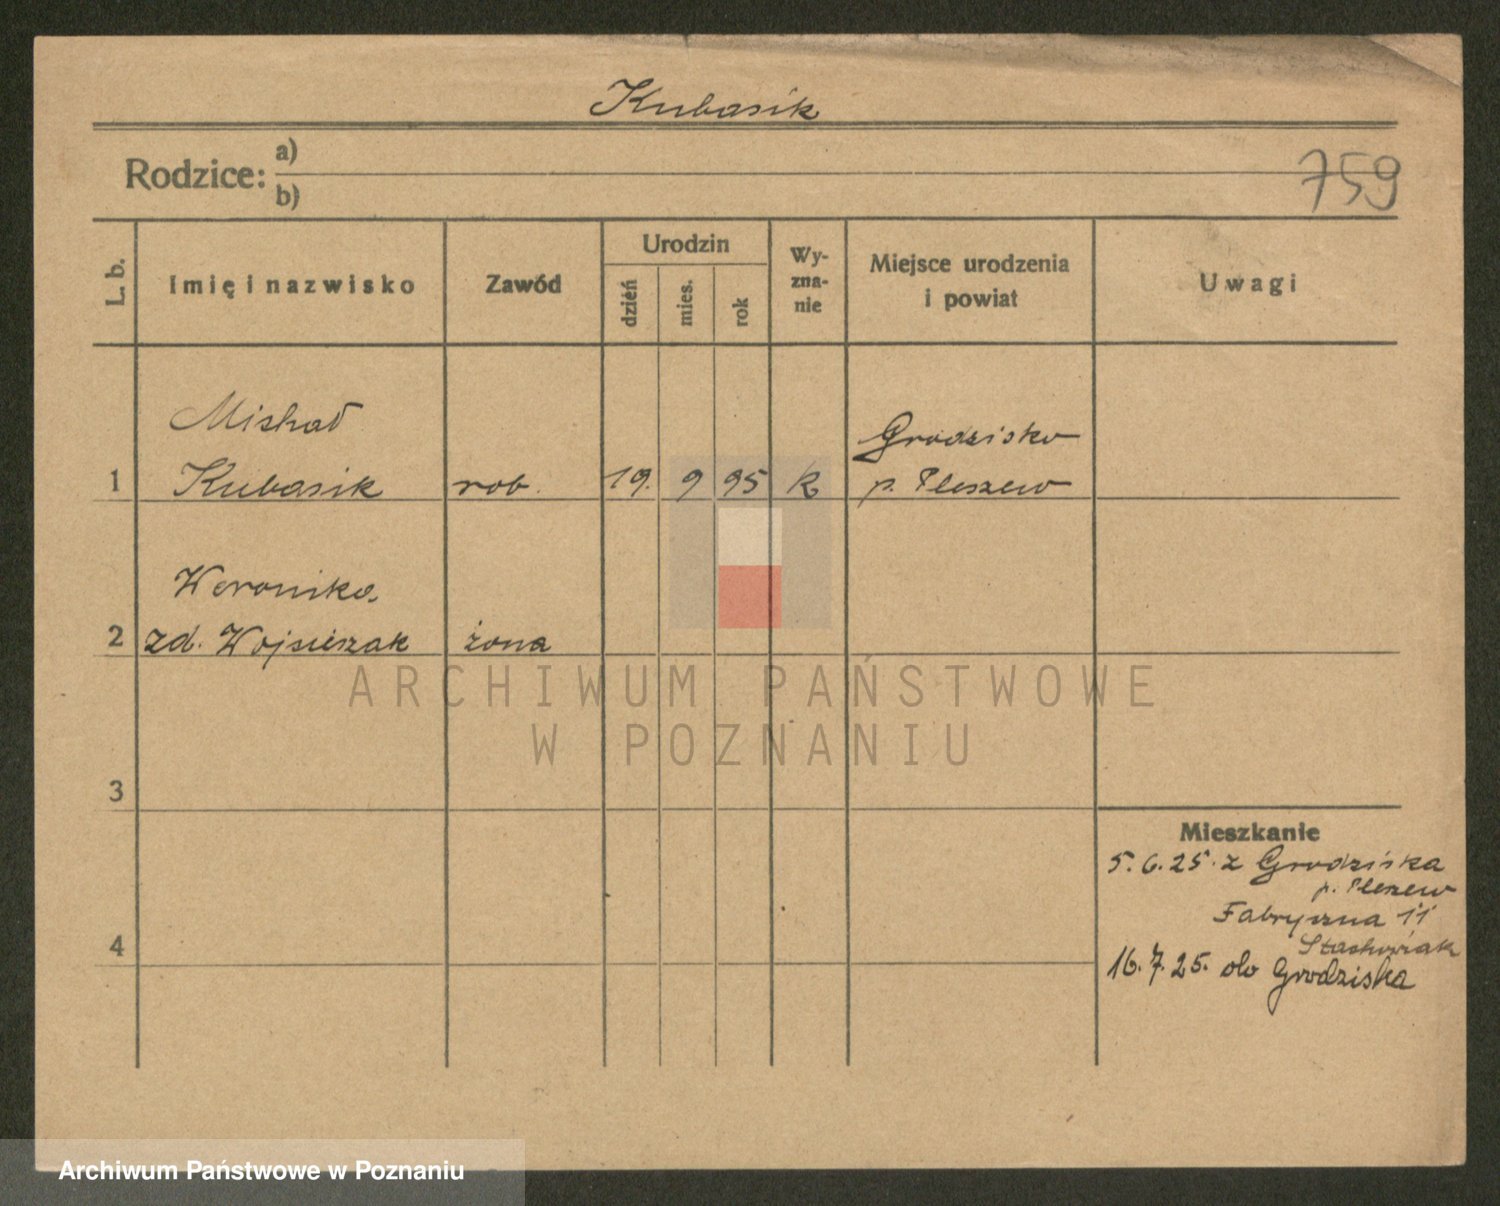 Kubasik
Rodzice:
a)
b)
759
L. b.
Imię i nazwisko
Zawód
Urodzin
dzień
mies.
rok
Wy-
zna-
nie
Miejsce urodzenia
i powiat
Uwagi
Michał
1 Kubasik rob. 19. 9 95 k
Grodzisko
p. Pleszew
Weronika
2 zd. Wojcieszak żona
ARCHIWUM PAŃSTWOWE
W POZNANIU
3
Mieszkanie
5.6.25. z Grodziska
p. Pleszew
Fabryczna 11
Stachowiak
4
16.7.25. do Grodziska
Archiwum Państwowe w Poznaniu